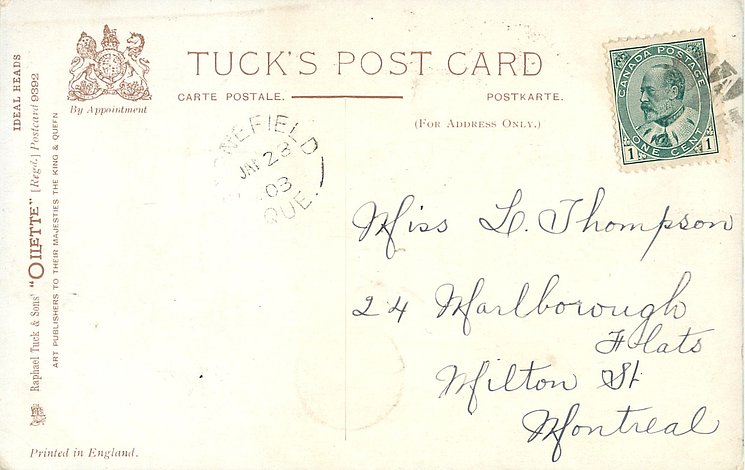 TUCK'S POST CARD
CARTE POSTALE.
POSTKARTE.
(FOR ADDRESS ONLY.)
By Appointment
IDEAL HEADS
Raphael Tuck & Sons' "OILETTE" [Regd.] Postcard 9392
ART PUBLISHERS TO THEIR MAJESTIES THE KING & QUEEN
Printed in England.
CANADA POSTAGE
1 ONE CENT 1
JAN 28
03
QUE.
Miss L. Thompson
24 Marlborough
Flats
Milton St
Montreal